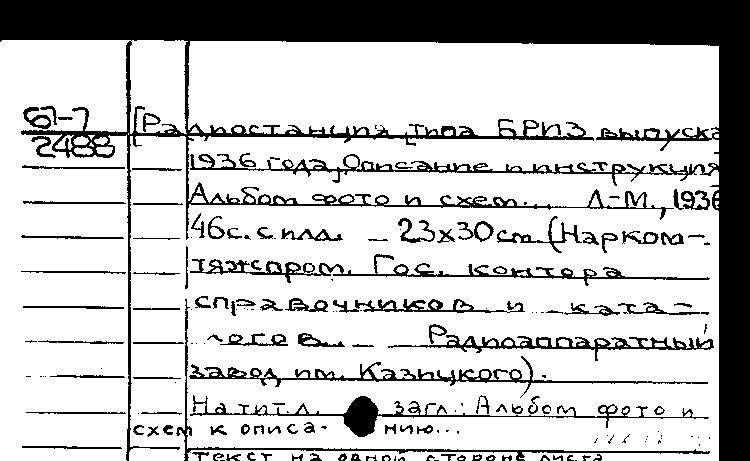 67-7
2488
[Радиостанция типа БРИЗ выпуска
1936 года, Описание и инструкция
Альбом фото и схем... Л.-М., 1936
46с. с илл. – 23х30см. (Нарком-
тяжпром. Гос. контора
справочников и ката-
логов. – Радиоаппаратный
завод им. Казицкого).
На тит.л. загл.: Альбом фото и
схем к описа- нию...
текст на одной стороне листа